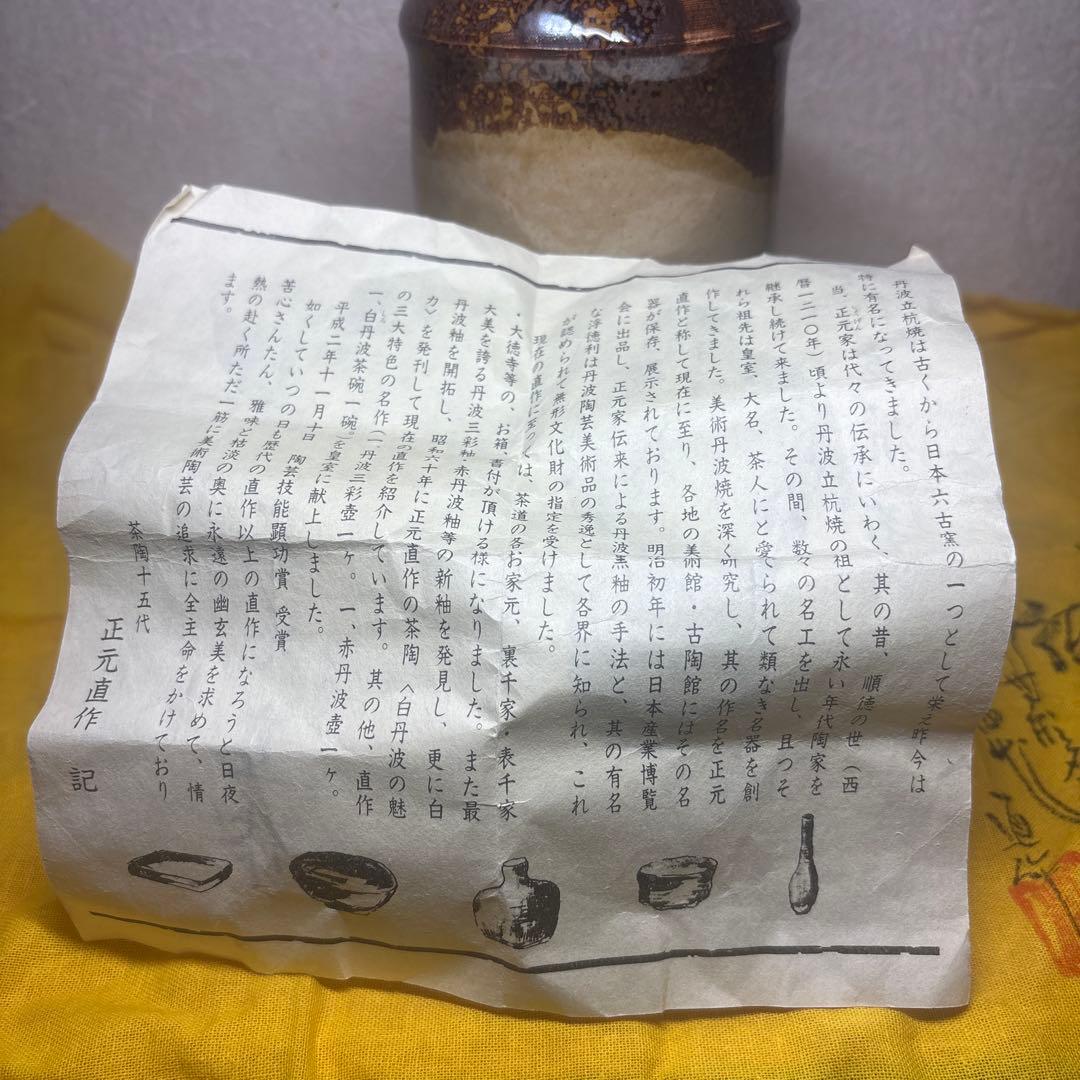 丹波立杭焼は古くから日本六古窯の一つとして栄え昨今は
特に有名になってきました。
当、正元家は代々の伝承にいわく、其の昔、順徳の世（西
しょうげん
暦一二一〇年）頃より丹波立杭焼の祖として永い年代陶家を
継承し続けて来ました。その間、数々の名工を出し、且つそ
れら祖先は皇室、大名、茶人にと愛られて類なき名器を創
作してきました。美術丹波焼を深く研究し、其の作名を正元
直作と称して現在に至り、各地の美術館・古陶館にはその名
器が保存、展示されております。明治初年には日本産業博覧
会に出品し、正元家伝来による丹波黒釉の手法と、其の有名
な浮徳利は丹波陶芸美術品の秀逸として各界に知られ、これ
が認められて無形文化財の指定を受けました。
現在の直作については、茶道の各お家元、裏千家・表千家
・大徳寺等の、お箱、書付が頂ける様になりました。また最
大美を誇る丹波三彩釉 赤丹波釉等の新釉を発見し、更に白
丹波釉を開拓し、昭和六十年に正元直作の茶陶〈白丹波の魅
力〉を発刊して現在の直作を紹介しています。其の他、直作
の三大特色の名作（一、丹波三彩壺一ヶ。一、赤丹波壺一ヶ。
一、白丹波茶碗一碗。）を皇室に献上しました。
平成二年十一月十日 陶芸技能顕功賞 受賞
如くしていつの日も歴代の直作以上の直作になろうと日夜
苦心さんたん、雅味と枯淡の奥に永遠の幽玄美を求めて、情
熱の赴く所ただ一筋に美術陶芸の追求に全主命をかけており
ます。
茶陶十五代
正元直作 記